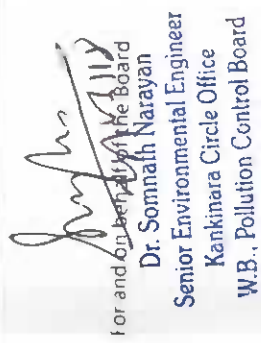 For and on behalf of the Board
Dr. Somnath Narayan
Senior Environmental Engineer
Kankinara Circle Office
W.B., Pollution Control Board